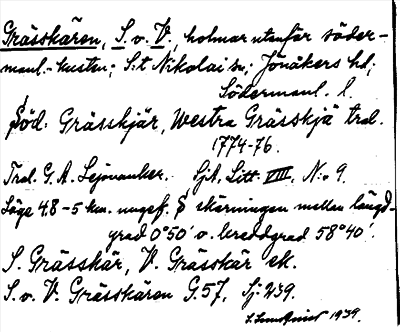 Grässkären, S. o. V., holmar utanför söder-
manl.-kusten; S:t Nikolai sn; Jönåkers hd;
Södermanl. l.
Söd. Grässkjär, Westra Grässkjä trol.
1774-76.
Trol. G. A. Lejonanker. Sjk. Litt. VIII. N:o 9.
Läge 4.8-5 km. ungef. S skärningen mellan längd-
grad 0°50' o. breddgrad 58°40'.
S. Grässkär, V. Grässkär ek.
S. o. V. Grässkären G. 57, Sj: 239.
1939.